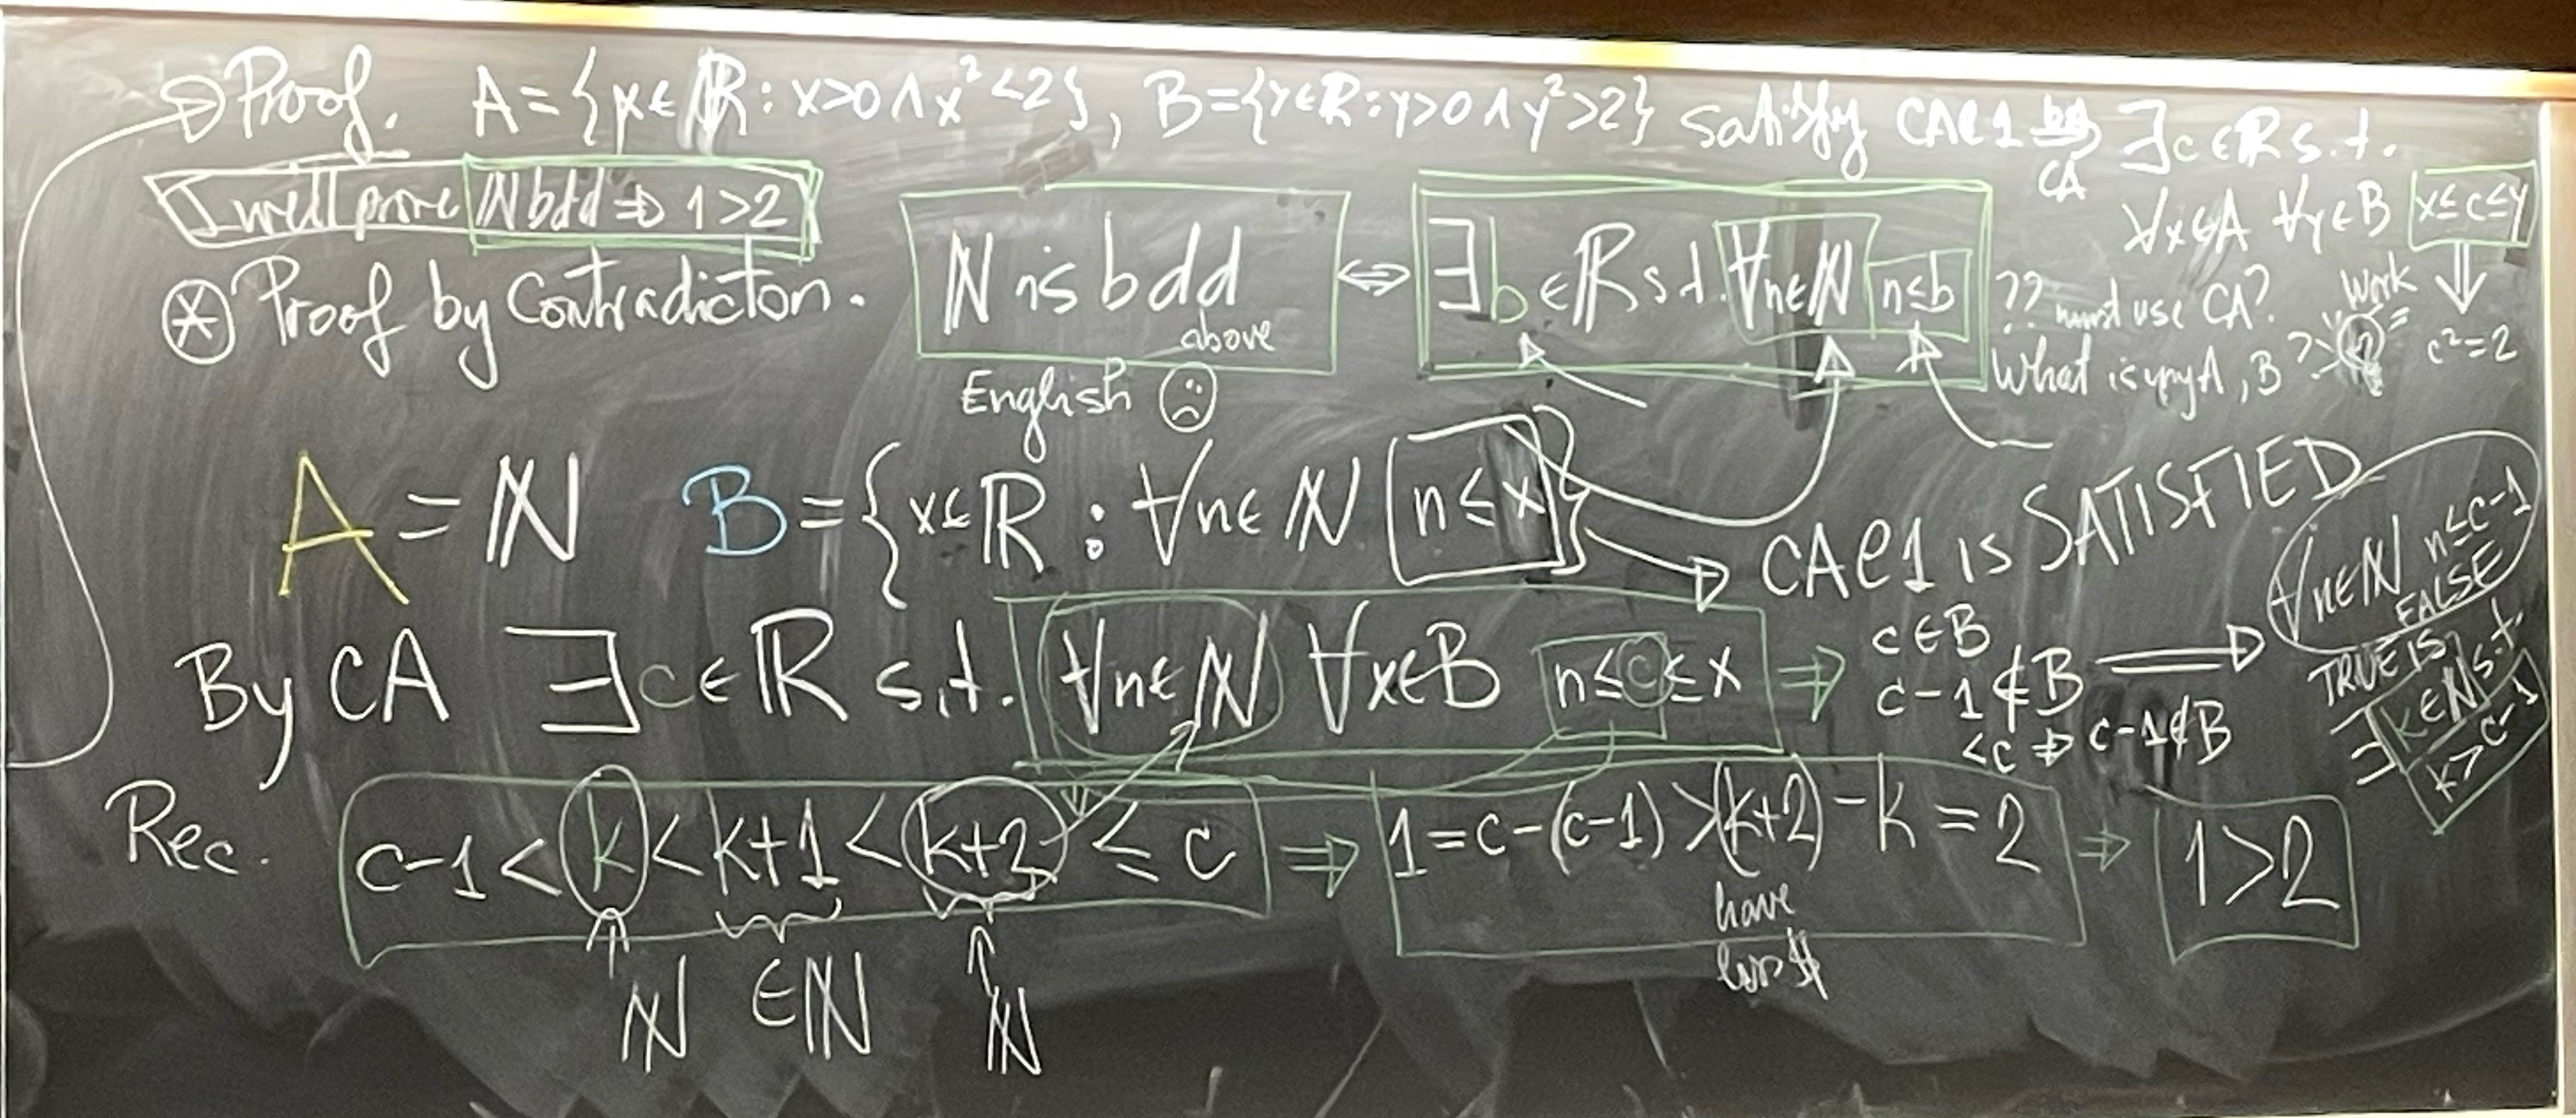 Proof. A={x∈ℝ: x>0 ∧ x²<2}, B={y∈ℝ: y>0 ∧ y²>2} satisfy CAC1 by CA ∃c∈ℝ s.t.
∀x∈A ∀y∈B x≤c≤y
⇓
c²=2
Work
I will prove ℕ bdd ⇒ 1>2
⊛ Proof by Contradicton.
ℕ is bdd above ⇔ ∃b∈ℝ s.t. ∀n∈ℕ n≤b
English ☹
?? must use CA?
What is my A, B?
A = ℕ B = {x∈ℝ : ∀n∈ℕ n≤x}
CAC1 is SATISFIED
By CA ∃c∈ℝ s.t. ∀n∈ℕ ∀x∈B n≤c≤x ⇒
c∈B
c-1∉B ⇒
<c ⇒ c-1∉B
∀n∈ℕ n≤c-1
FALSE
TRUE IS
∃k∈ℕ s.t.
k>c-1
Rec. c-1 < k < k+1 < k+2 ≤ c ⇒ 1=c-(c-1)>(k+2)-k=2 ⇒ 1>2
have
ℕ ∈ℕ ℕ